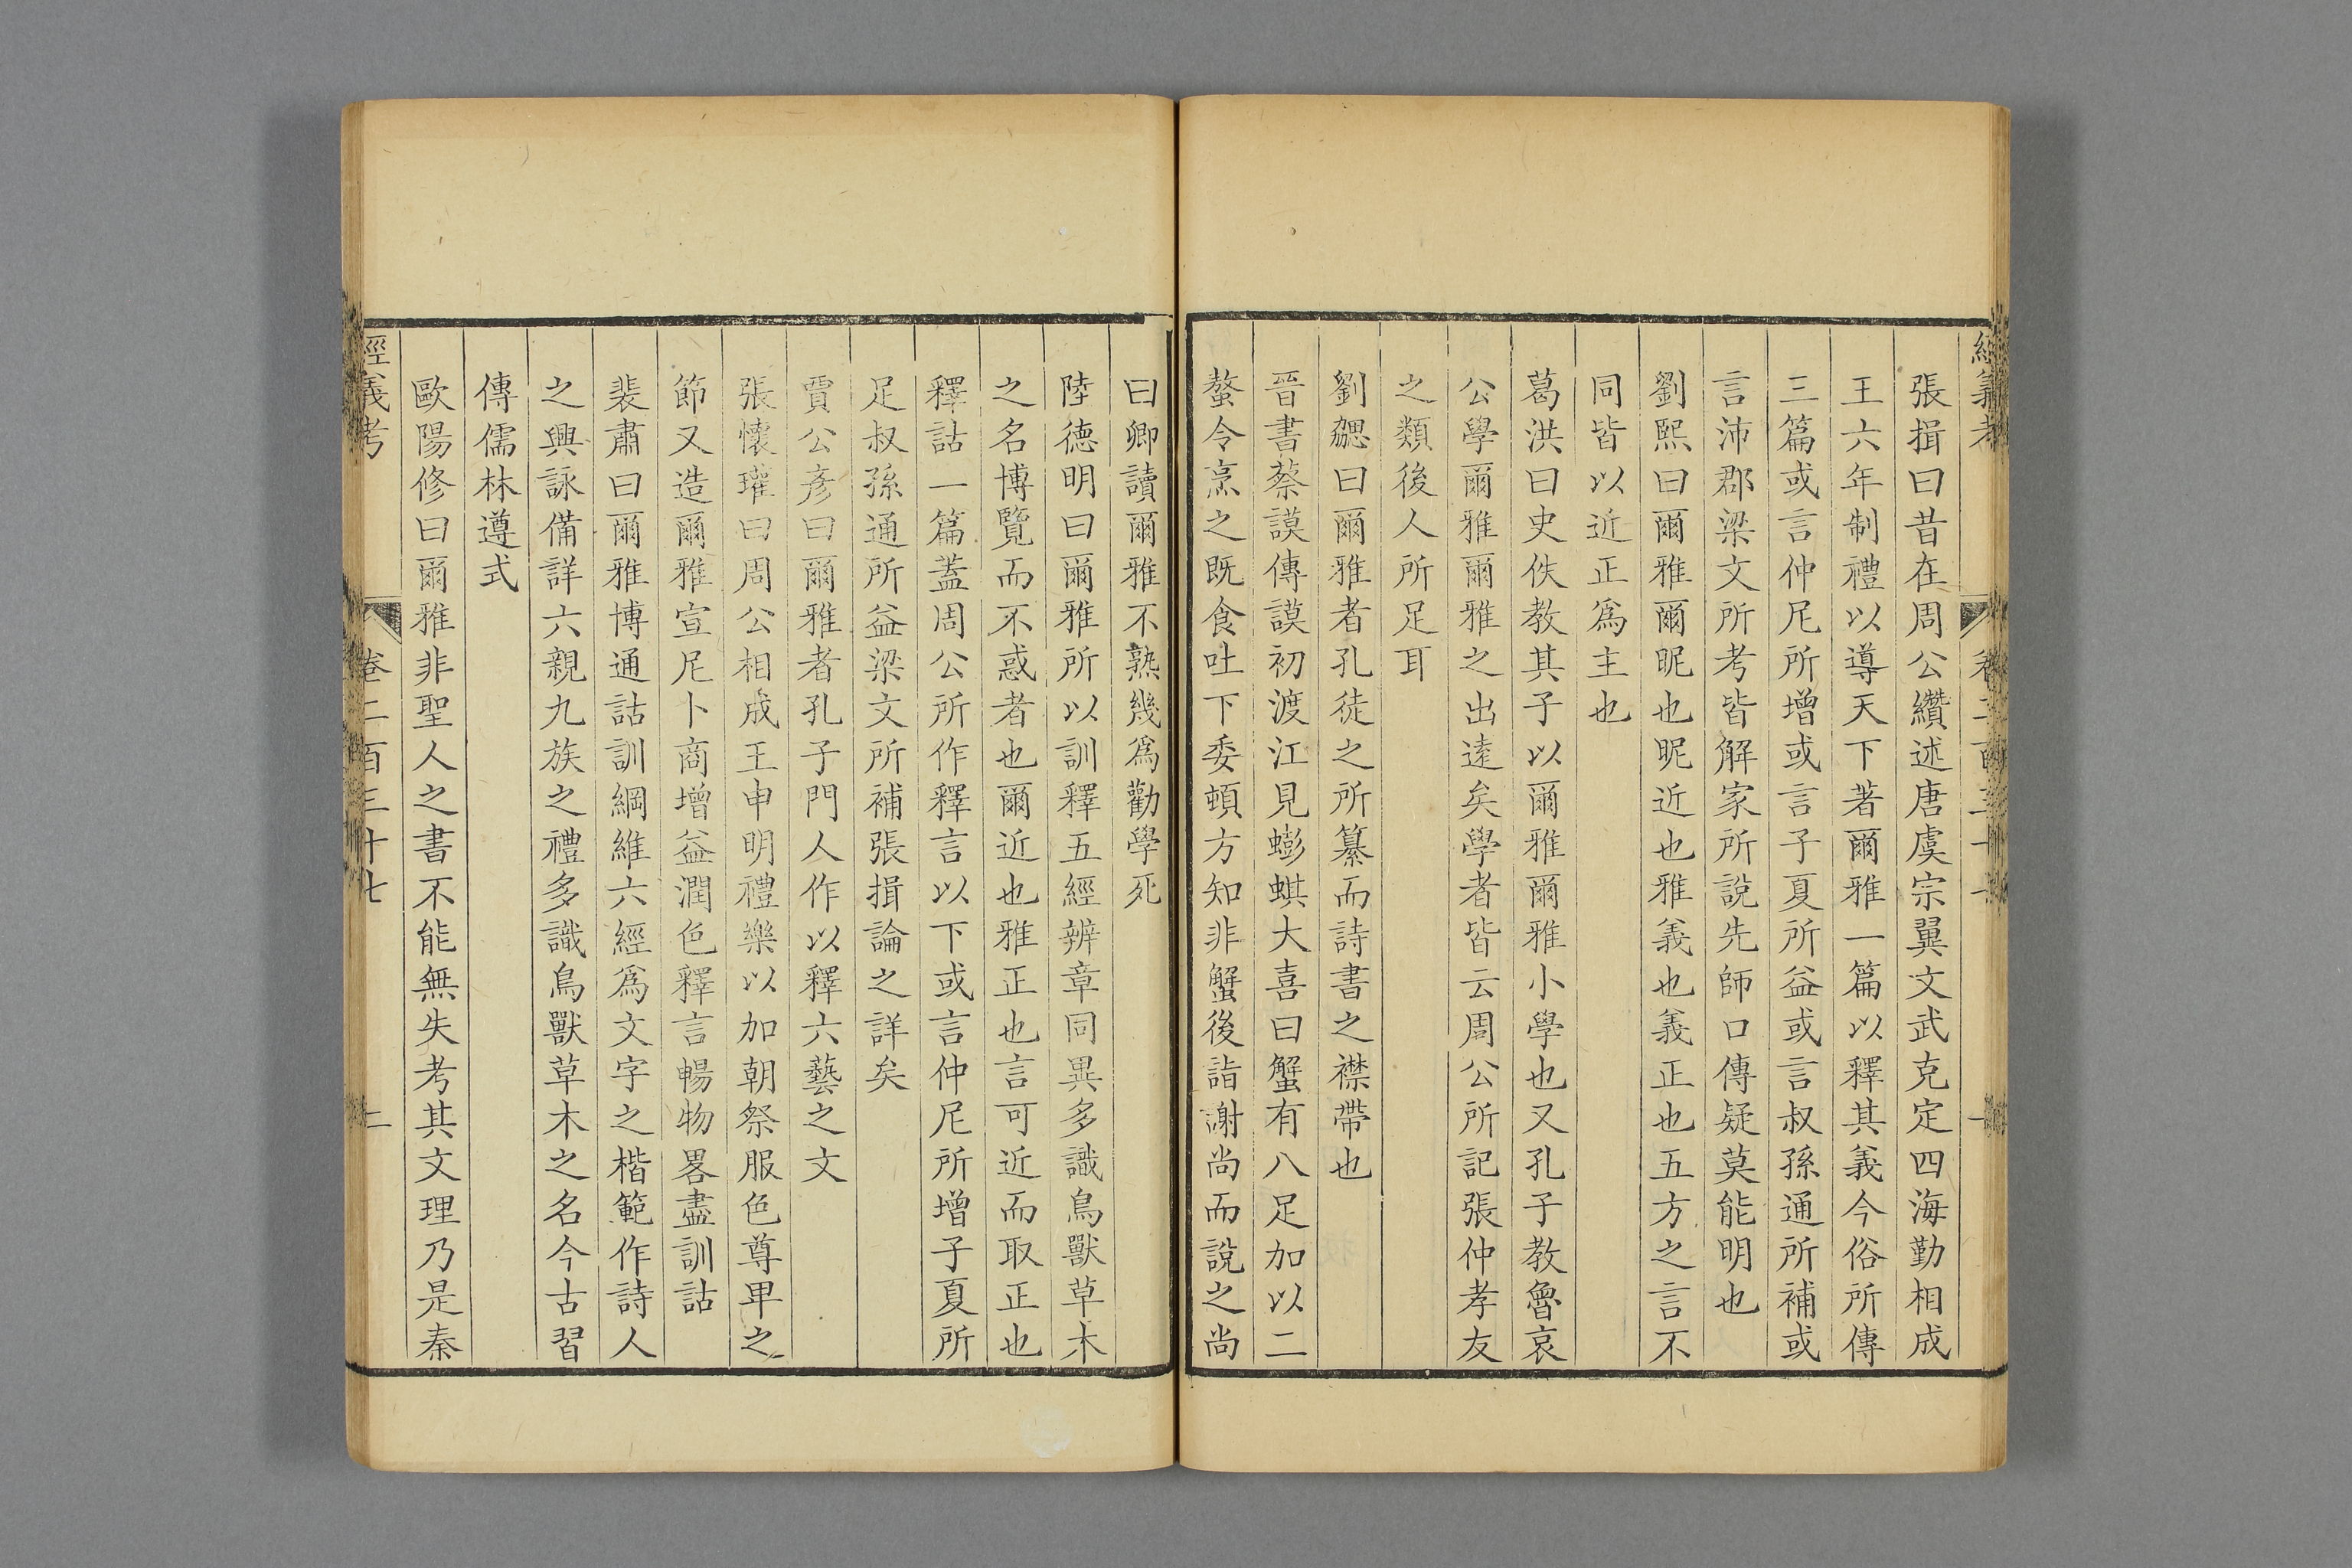 張揖曰昔在周公纘述唐虞宗翼文武克定四海勤相成
王六年制禮以導天下著爾雅一篇以釋其義今俗所傳
三篇或言仲尼所增或言子夏所益或言叔孫通所補或
言沛郡梁文所考皆解家所說先師口傳疑莫能明也
劉熙曰爾雅爾昵也昵近也雅義也義正也五方之言不
同皆以近正爲主也
葛洪曰史佚教其子以爾雅爾雅小學也又孔子教魯哀
公學爾雅爾雅之出遠矣學者皆云周公所記張仲孝友
之類後人所足耳
劉勰曰爾雅者孔徒之所纂而詩書之襟帶也
晉書蔡謨傳謨初渡江見蟛蜞大喜曰蟹有八足加以二
螯令烹之既食吐下委頓方知非蟹後詣謝尚而說之尚
曰卿讀爾雅不熟幾爲勸學死
陸德明曰爾雅所以訓釋五經辨章同異多識鳥獸草木
之名博覽而不惑者也爾近也雅正也言可近而取正也
釋詁一篇蓋周公所作釋言以下或言仲尼所增子夏所
足叔孫通所益梁文所補張揖論之詳矣
賈公彥曰爾雅者孔子門人作以釋六藝之文
張懷瓘曰周公相成王申明禮樂以加朝祭服色尊卑之
節又造爾雅宣尼卜商增益潤色釋言暢物畧盡訓詁
裴肅曰爾雅博通詁訓綱維六經爲文字之楷範作詩人
之興詠備詳六親九族之禮多識鳥獸草木之名今古習
傳儒林遵式
歐陽修曰爾雅非聖人之書不能無失考其文理乃是秦
經義考 卷二百三十七 二